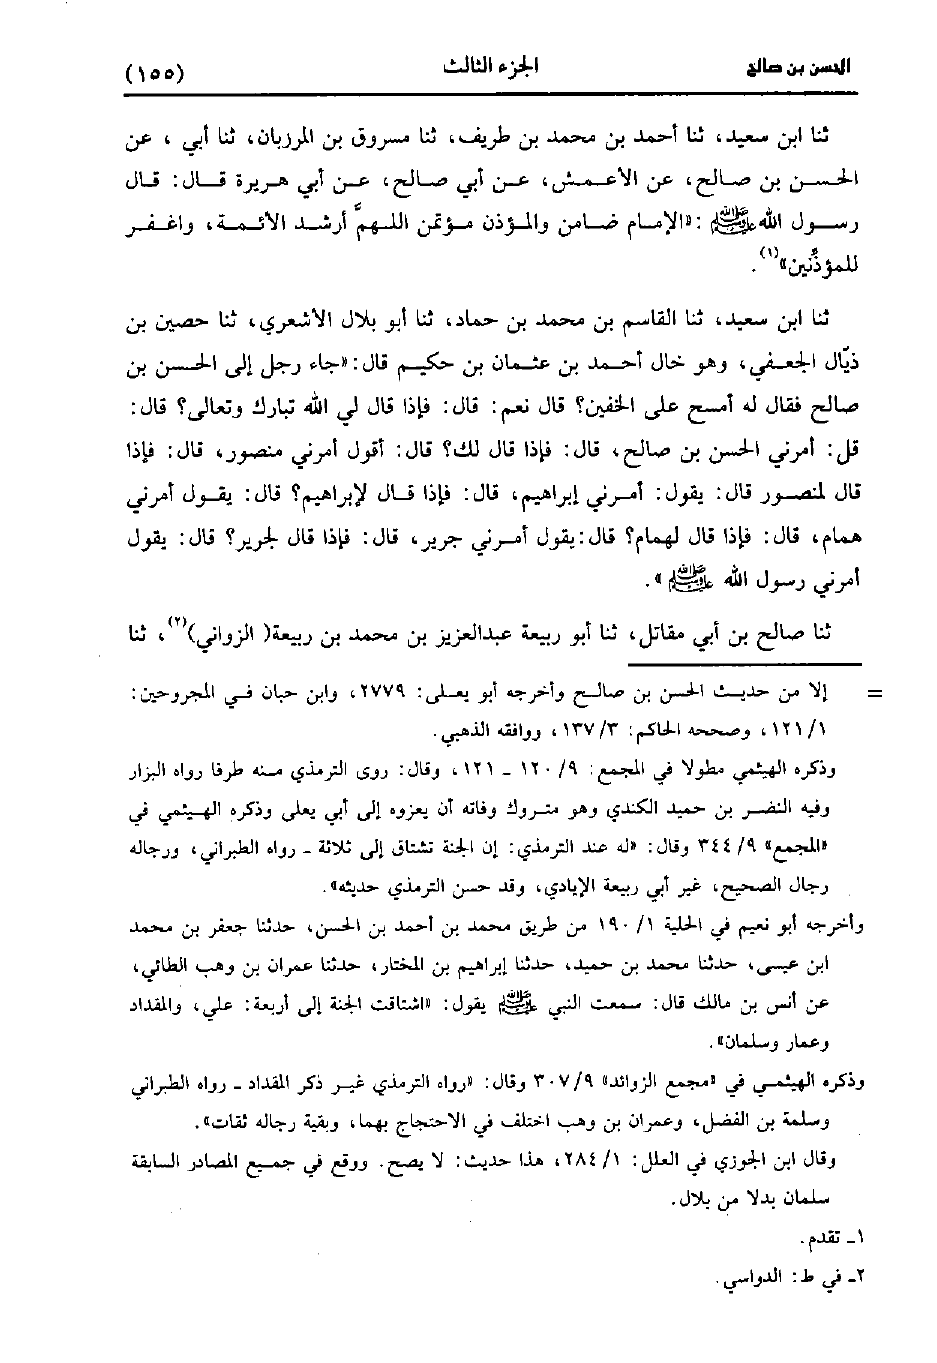 الحسن بن صالح
الجزء الثالث
(١٥٥)
ثنا ابن سعيد، ثنا أحمد بن محمد بن طريف، ثنا مسروق بن المرزبان، ثنا أبي ، عن
الحسن بن صالح، عن الأعمش، عن أبي صالح، عن أبي هريرة قال: قال
رسول الله ﷺ :«الإمام ضامن والمؤذن مؤتمن اللهمَّ أرشد الأئمة، واغفر
للمؤذِّنين»(١).
ثنا ابن سعيد، ثنا القاسم بن محمد بن حماد، ثنا أبو بلال الأشعري، ثنا حصين بن
ذيّال الجعفي، وهو خال أحمد بن عثمان بن حكيم قال:«جاء رجل إلى الحسن بن
صالح فقال له أمسح على الخفين؟ قال نعم: قال: فإذا قال لي الله تبارك وتعالى؟ قال:
قل: أمرني الحسن بن صالح، قال: فإذا قال لك؟ قال: أقول أمرني منصور، قال: فإذا
قال لمنصور قال: يقول: أمرني إبراهيم، قال: فإذا قال لإبراهيم؟ قال: يقول أمرني
همام، قال: فإذا قال لهمام؟ قال:يقول أمرني جرير، قال: فإذا قال لجرير؟ قال: يقول
أمرني رسول الله ﷺ».
ثنا صالح بن أبي مقاتل، ثنا أبو ربيعة عبدالعزيز بن محمد بن ربيعة( الزواني)(٢)، ثنا
= إلا من حديث الحسن بن صالح وأخرجه أبو يعلى: ٢٧٧٩، وابن حبان في المجروحين:
١/ ١٢١، وصححه الحاكم: ٣/ ١٣٧، ووافقه الذهبي.
وذكره الهيثمي مطولا في المجمع: ٩/ ١٢٠ ـ ١٢١، وقال: روى الترمذي منه طرفا رواه البزار
وفيه النضر بن حميد الكندي وهو متروك وفاته أن يعزوه إلى أبي يعلى وذكره الهيثمي في
«المجمع» ٩/ ٣٤٤ وقال: «له عند الترمذي: إن الجنة تشتاق إلى ثلاثة ـ رواه الطبراني، ورجاله
رجال الصحيح، غير أبي ربيعة الإيادي، وقد حسن الترمذي حديثه».
وأخرجه أبو نعيم في الحلية ١/ ١٩٠ من طريق محمد بن أحمد بن الحسن، حدثنا جعفر بن محمد
ابن عيسى، حدثنا محمد بن حميد، حدثنا إبراهيم بن المختار، حدثنا عمران بن وهب الطائي،
عن أنس بن مالك قال: سمعت النبي ﷺ يقول: «اشتاقت الجنة إلى أربعة: علي، والمقداد
وعمار وسلمان».
وذكره الهيثمي في «مجمع الزوائد» ٩/ ٣٠٧ وقال: «رواه الترمذي غير ذكر المقداد ـ رواه الطبراني
وسلمة بن الفضل، وعمران بن وهب اختلف في الاحتجاج بهما، وبقية رجاله ثقات».
وقال ابن الجوزي في العلل: ١/ ٢٨٤، هذا حديث: لا يصح. ووقع في جميع المصادر السابقة
سلمان بدلا من بلال.
١ـ تقدم.
٢ـ في ط: الدواسي.